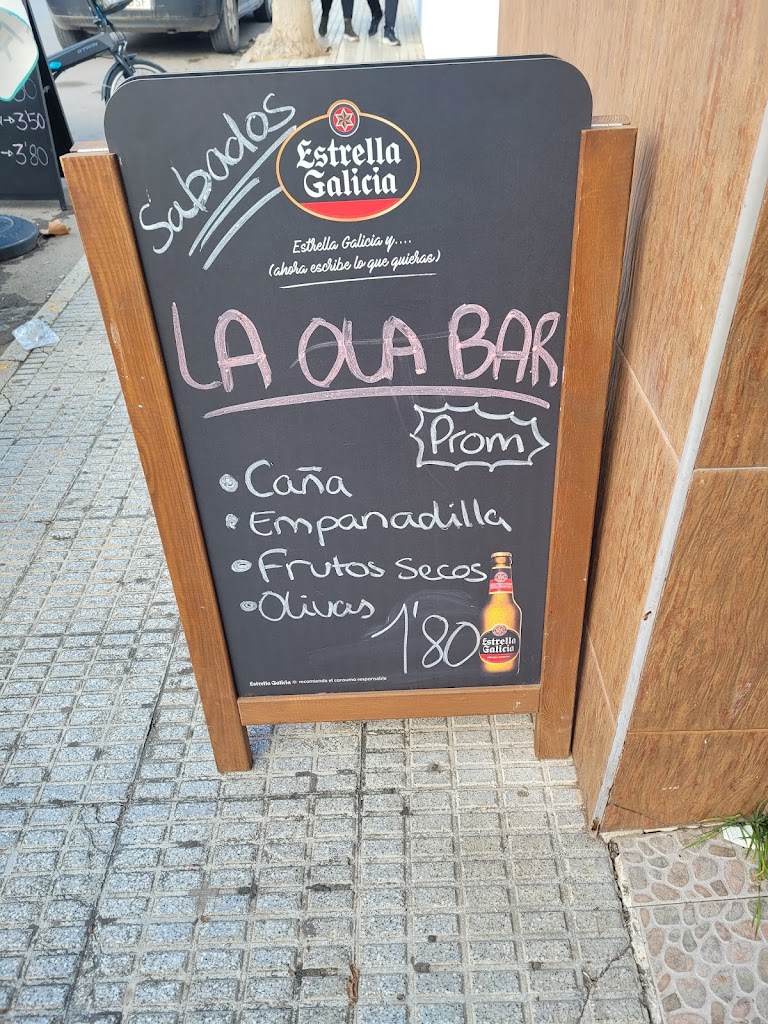 Sabados
Estrella
Galicia
Estrella Galicia y....
(ahora escribe lo que quieras)
LA OLA BAR
Prom
• Caña
• Empanadilla
• Frutos Secos
• Olivas
1'80
Estrella
Galicia
Estrella Galicia recomienda el consumo responsable
3'50
3'80